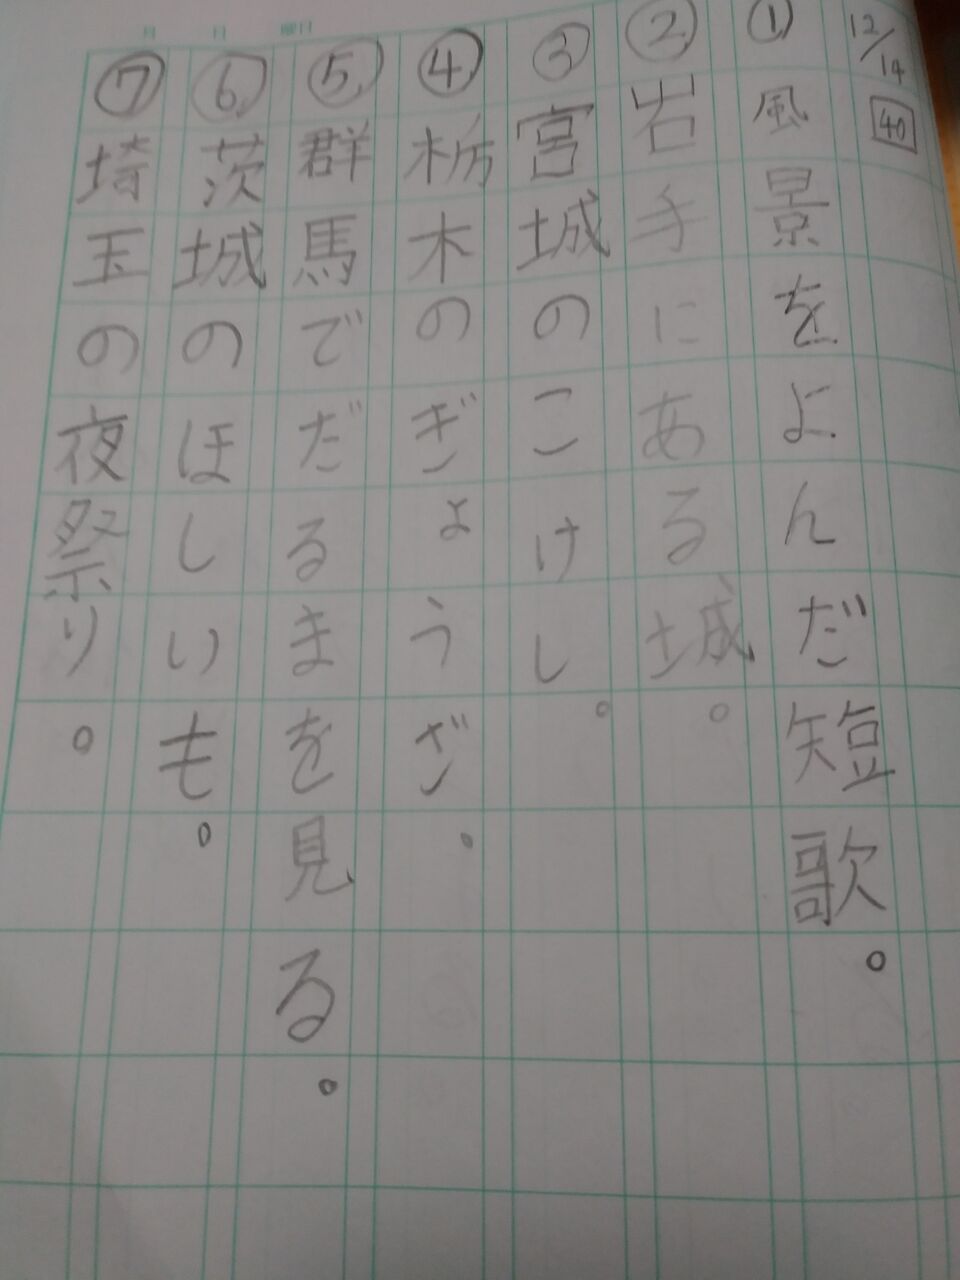 12/14 40
①風景をよんだ短歌。
②岩手にある城。
③宮城のこけし。
④栃木のぎょうざ。
⑤群馬でだるまを見る。
⑥茨城のほしいも。
⑦埼玉の夜祭り。
月 日 曜日